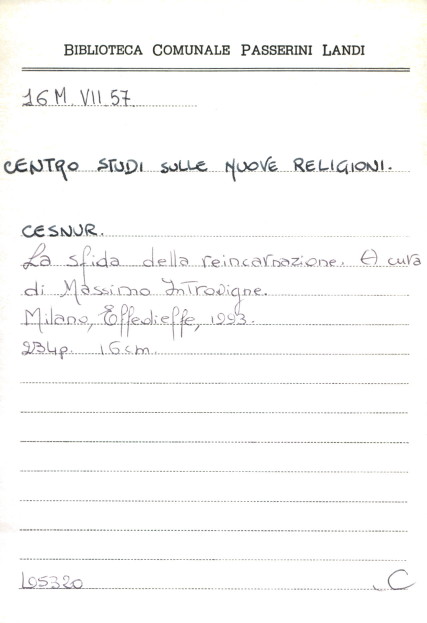 BIBLIOTECA COMUNALE PASSERINI LANDI
16 M. VII. 57
CENTRO STUDI SULLE NUOVE RELIGIONI.
CESNUR.
La sfida della reincarnazione. A cura
di Massimo Introvigne.
Milano, Effedieffe, 1993.
234p. 16cm.
L05320
C